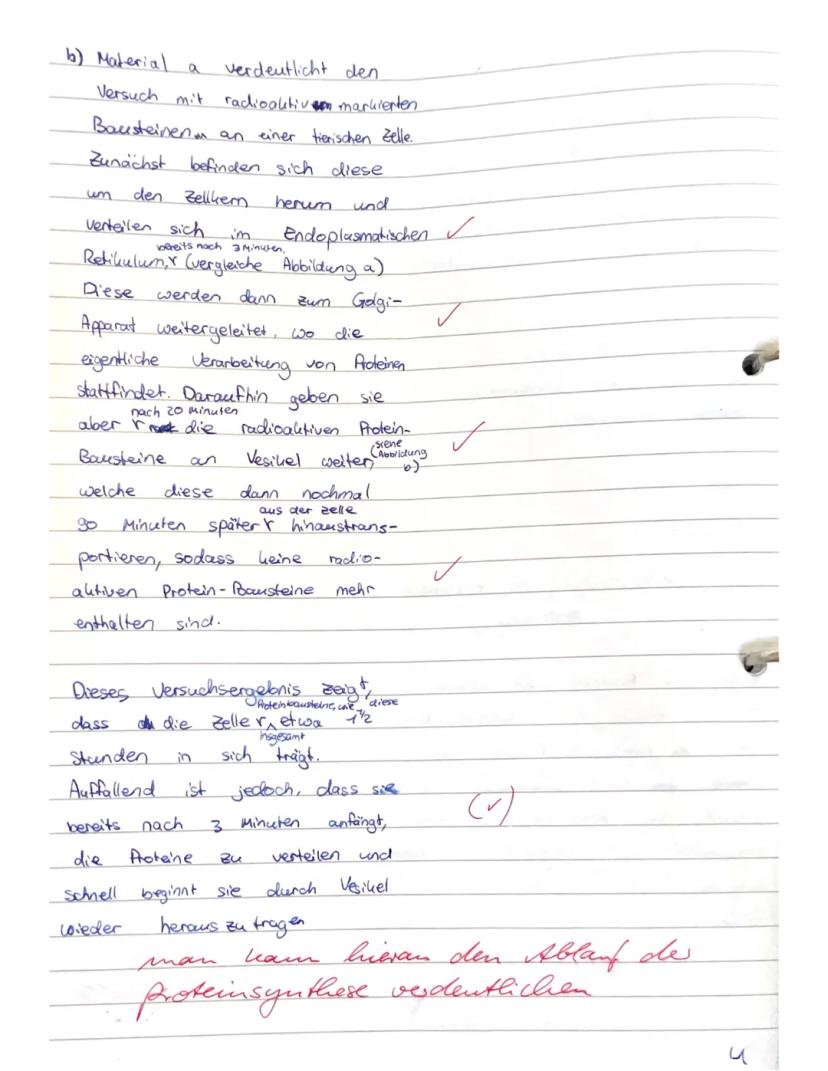 b) Material a verdeutlicht den
Versuch mit radioaktiv markierten
Bausteinen an einer tierischen Zelle.
Zunächst befinden sich diese
um den Zellkern herum und
verteilen sich im Endoplasmatischen ✓
bereits nach 3 Minuten.
Retikulum, (vergleiche Abbildung a)
Diese werden dann zum Golgi-
Apparat weitergeleitet, wo die ✓
eigentliche Verarbeitung von Proteinen
stattfindet. Daraufhin geben sie
nach 20 Minuten
aber die radioaktiven Protein- ✓
Bausteine an Vesikel weiter, (siehe Abbildung b)
welche diese dann nochmal
aus der Zelle
90 Minuten später hinaustrans-
portieren, sodass keine radio-
aktiven Protein-Bausteine mehr ✓
enthalten sind.
Dieses Versuchsergebnis zeigt,
Proteinbausteine, wie diese
dass die Zelle etwa 1 1/2
insgesamt
Stunden in sich trägt.
Auffallend ist jedoch, dass sie
bereits nach 3 Minuten anfängt, (✓)
die Proteine zu verteilen und
schnell beginnt sie durch Vesikel
wieder heraus zu tragen
man kann hieran den Ablauf der
Proteinsynthese verdeutlichen
4